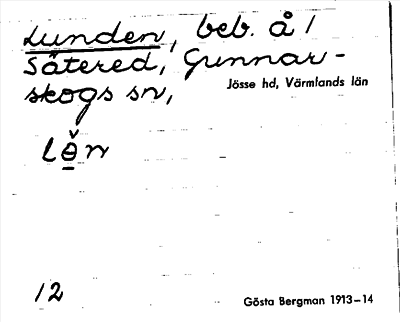 Lunden, beb. å /
Såtered, Gunnar-
skogs sn,
Jösse hd, Värmlands län
lө̲̌n
12
Gösta Bergman 1913–14